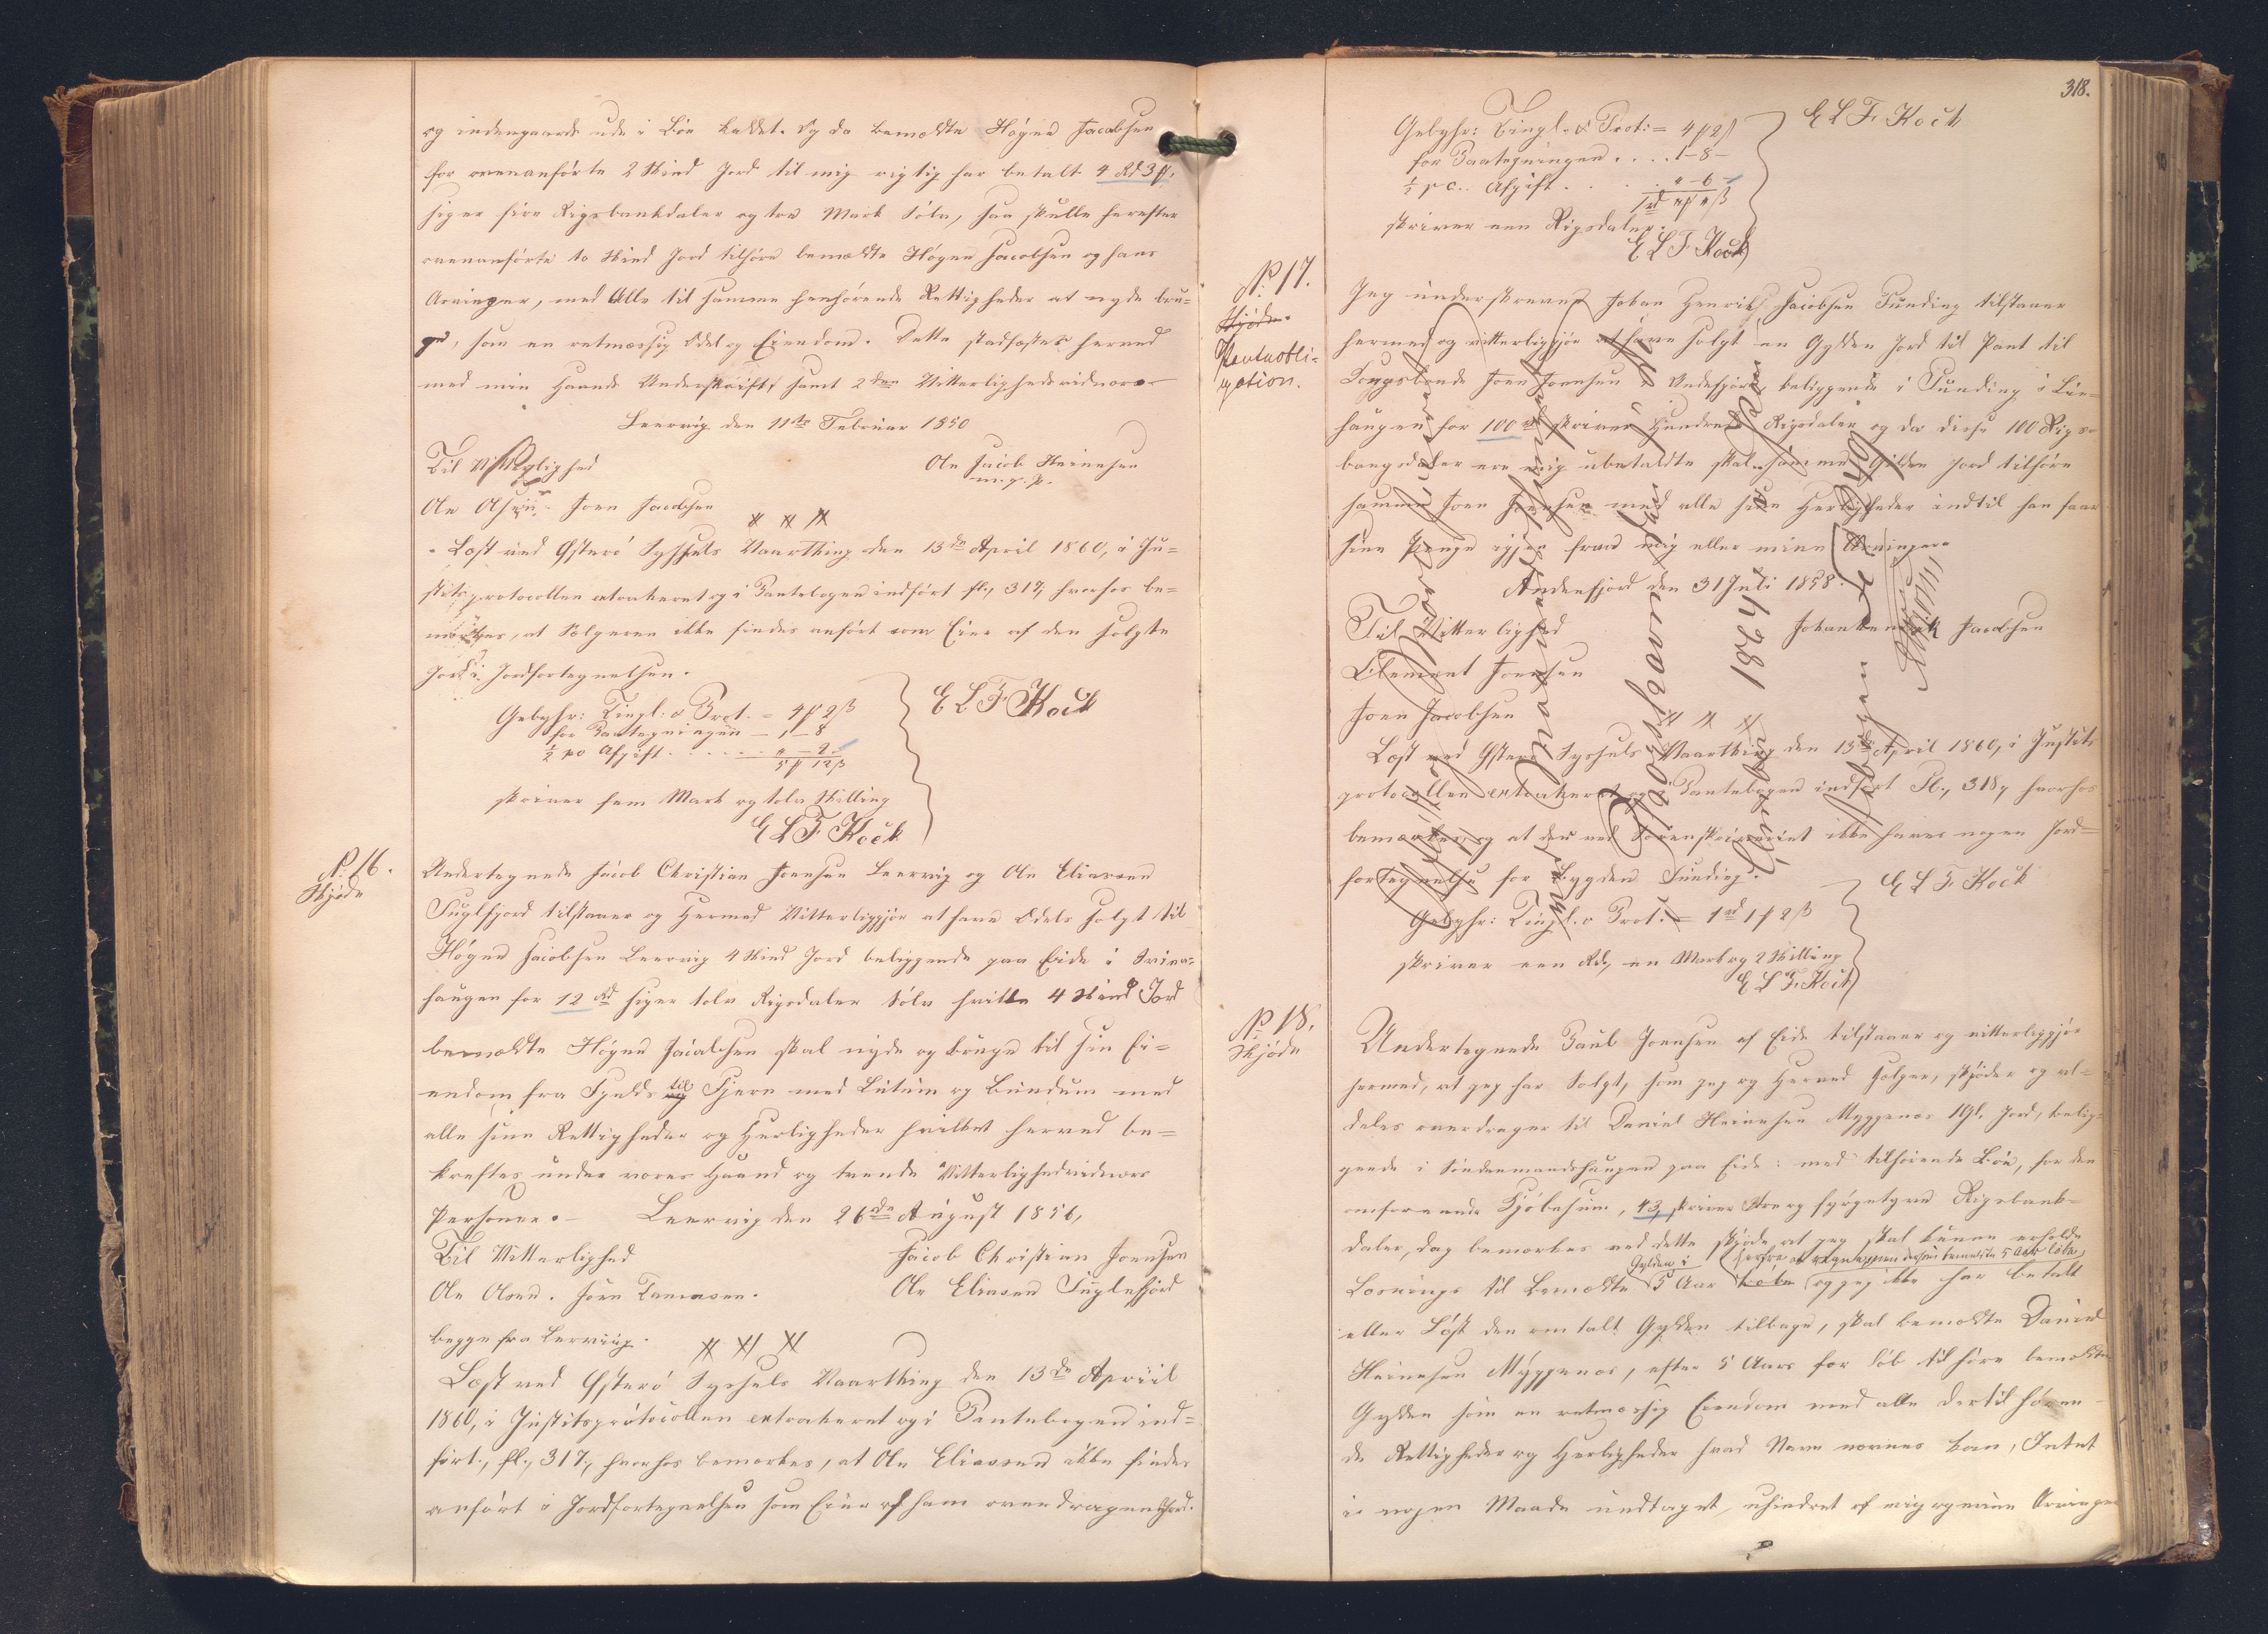 og indengaards ude i Bøe kaldet. Og da bemældte Høgne Jacobsen
for ovenanførte 2 Skind Jord til mig rigtig har betalt 4 Rd 3 ꝑ,
siger fire Rigsbankdaler og tre Mark Sølv, saa skulle herefter
ovenanførte to Skind Jord tilhøre bemældte Høgne Jacobsen og hans
Arvinger, med Alle til samme henhørende Rettigheder at nyde bru=
ge, som en retmæssig Odel og Eiendom. Dette stadfæstes herved
med min Haands Underskrift, samt 2de Vitterligheds vidner
Leervig den 11te Februar 1850
Til Vitterlighed
Ole Jacob Heinesen
m. g. p.
Ole Olsen. Joen Jacobsen
Læst ved Østerø Syssels Vaarthing den 13de April 1860, i Ju=
stitsprotocollen extraheret og i Pantebogen indført fl., 317, hvorhos be=
mærkes, at Sælgeren ikke findes anført som Eier af den solgte
Jord i Jordfortegnelsen.
Gebyhr: Tingl. & Prot. = 4 ꝑ 2 ß
for Paategningen – 1 – 8
½ pc Afgift . . . . . „ – 2
5 ꝑ 12 ß
E L F Koch
skriver fem Mark og tolv Skilling
E L F Koch
N. 16.
Skjøde
Undertegnede Jacob Christian Joensen Leervig og Ole Eliassen
Fuglfjord tilstaaer og Hermed Vitterliggjør at have Odels solgt til
Høgne Jacobsen Leervig 4 Skind Jord beliggende paa Eide i Svina=
haugen for 12 Rd siger tolv Rigsdaler Sølv hvilke 4 Skind Jord
bemældte Høgne Jacobsen skal nyde og bruge til sin Ei=
endom fra Fjelds og til Fjere med Lutum og Lundum med
alle sine Rettigheder og Herligheder hvilket herved be=
kreftes under vores Haand og tvende Vitterlighedvidners
Personer. – Leervig den 26de August 1856,
Til Vitterlighed
Jacob Christian Joensen
Ole Olsen. Jørn
Ole Eliasen Fuglefjord
begge fra Lerviig.
Læst ved Østerø Syssels Vaarthing den 13de April
1860, i Justitsprotocollen extraheret og i Pantebogen ind=
ført, fl., 317., hvorhos bemærkes, at Ole Eliassen ikke findes
anført i Jordfortegnelsen som Eier af ham overdragen Jord.
318.
Gebyhr: Tingl. & Prot: = 4 ꝑ 2 ß
for Paategningen . . . . 1 – 8 –
½ pc. Afgift . . . . . „ – 6 –
1 rd „ ꝑ „ ß
E L F Koch
skriver een Rigsdaler.
E L F Koch
N. 17.
Skjøde.
Pantobli=
gation.
Jeg underskrevne Johan Henrik Jacobsen Funding tilstaaer
hermed og vitterliggjør at have solgt en Gylden Jord til Pant til
Kongsbonde Joen Joensen i Andefjord beliggende i Funding i Lien=
haugen for 100 rd skriver Hundrede Rigsdaler og da disse 100 Rigs=
bangsdaler ere mig ubetaldte skal samme Gilden Jord tilhøre
samme Joen Joensen med alle sine Herligheder indtil han faar
sine Penge igjen fraa mig eller mine Arvinger.
Andenfjord den 31 Juli 1858.
Til Vitterlighed
Johanhenrik Jacobsen
Clement Joensen
Joen Jacobsen
Læst ved Østerø Syssels Vaarthing den 13de April 1860, i Justits
protocollen extraheret og i Pantebogen indført Fl., 318, hvorhos
bemærkes, at der ved Sorenskriveriet ikke haves nogen Jord=
fortegnelse for Bygden Funding.
E L F Koch
Gebyhr: Tingl. & Prot: = 1 rd 1 ꝑ 2 ß
skriver een Rd, en Mark og 2 Skilling
E L F Koch
N. 18.
Skjøde
Undertegnede Paul Joensen af Eide tilstaaer og vitterliggjør
hermed, at jeg har Solgt, som jeg og Herved sælger, skjøder og al=
deles overdrager til Daniel Heinesen Myggenæs 1 Gl. Jord, belig=
gende i Søndenmandshaugen paa Eide: med tilhørende Bøe, for den
omforenede Kjøbesum, 43, skriver Tre og fyrgetyve Rigsbank=
daler, dog bemærkes ved dette Skjøde, at jeg skal kunne erholde
Gylden i herfra at regne, men dersom bemældte 5 Aar løbe,
Løsnings til bemældte 5 Aar løbe og jeg ikke har betalt
eller Løst den omtalt Gylden tilbage, skal bemældte Daniel
Heinesen Myggenæs, efter 5 Aars for løb tilhøre bemældte
Gylden som en retmæssig Eiendom med alle dertil høren=
de Rettigheder og Herligheder hvad Navn nævnes kan, Intet
i nogen Maade undtaget, uhindret af mig og mine Arvinger